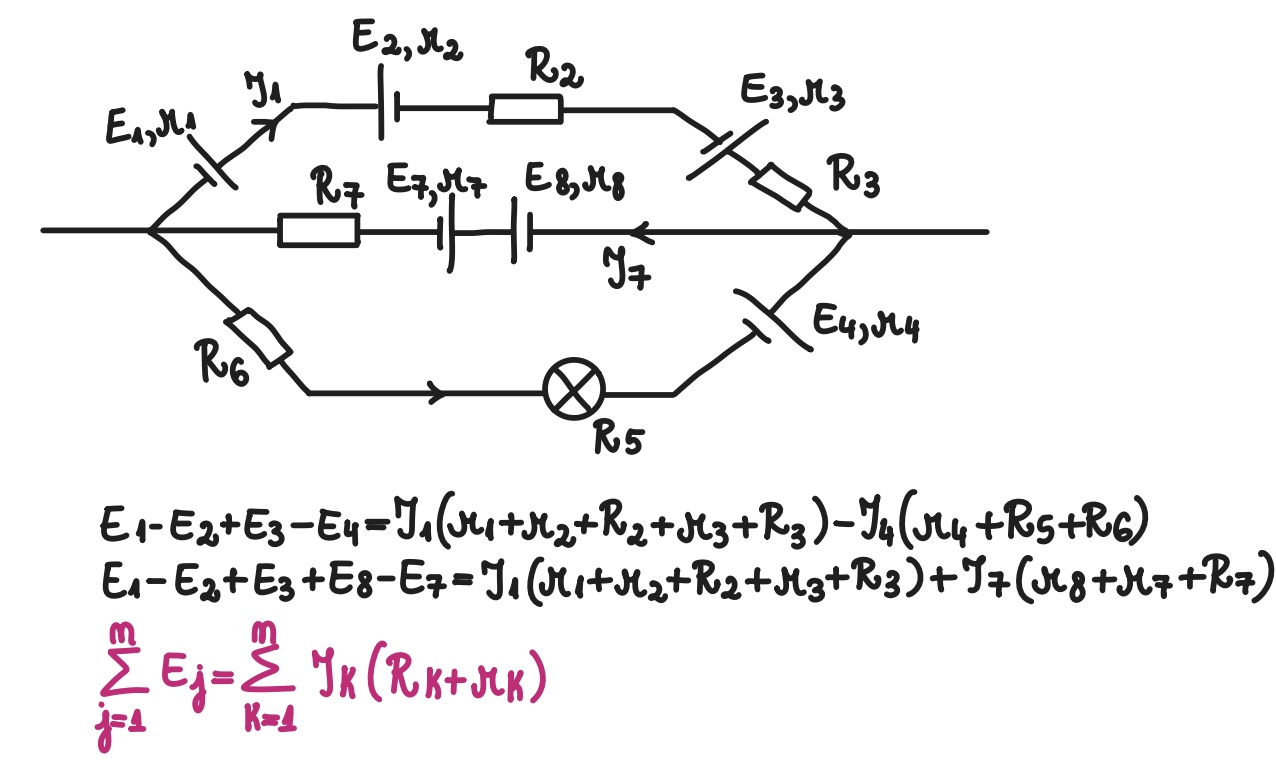 E₂,r₂
R₂
E₃,r₃
J₁
E₁,r₁
R₃
R₇
E₇,r₇
E₈,r₈
J₇
E₄,r₄
R₆
R₅
E₁-E₂+E₃-E₄=J₁(r₁+r₂+R₂+r₃+R₃)-J₄(r₄+R₅+R₆)
E₁-E₂+E₃+E₈-E₇=J₁(r₁+r₂+R₂+r₃+R₃)+J₇(r₈+r₇+R₇)
∑_{j=1}^{m} E_j=∑_{K=1}^{m} J_K(R_K+r_K)